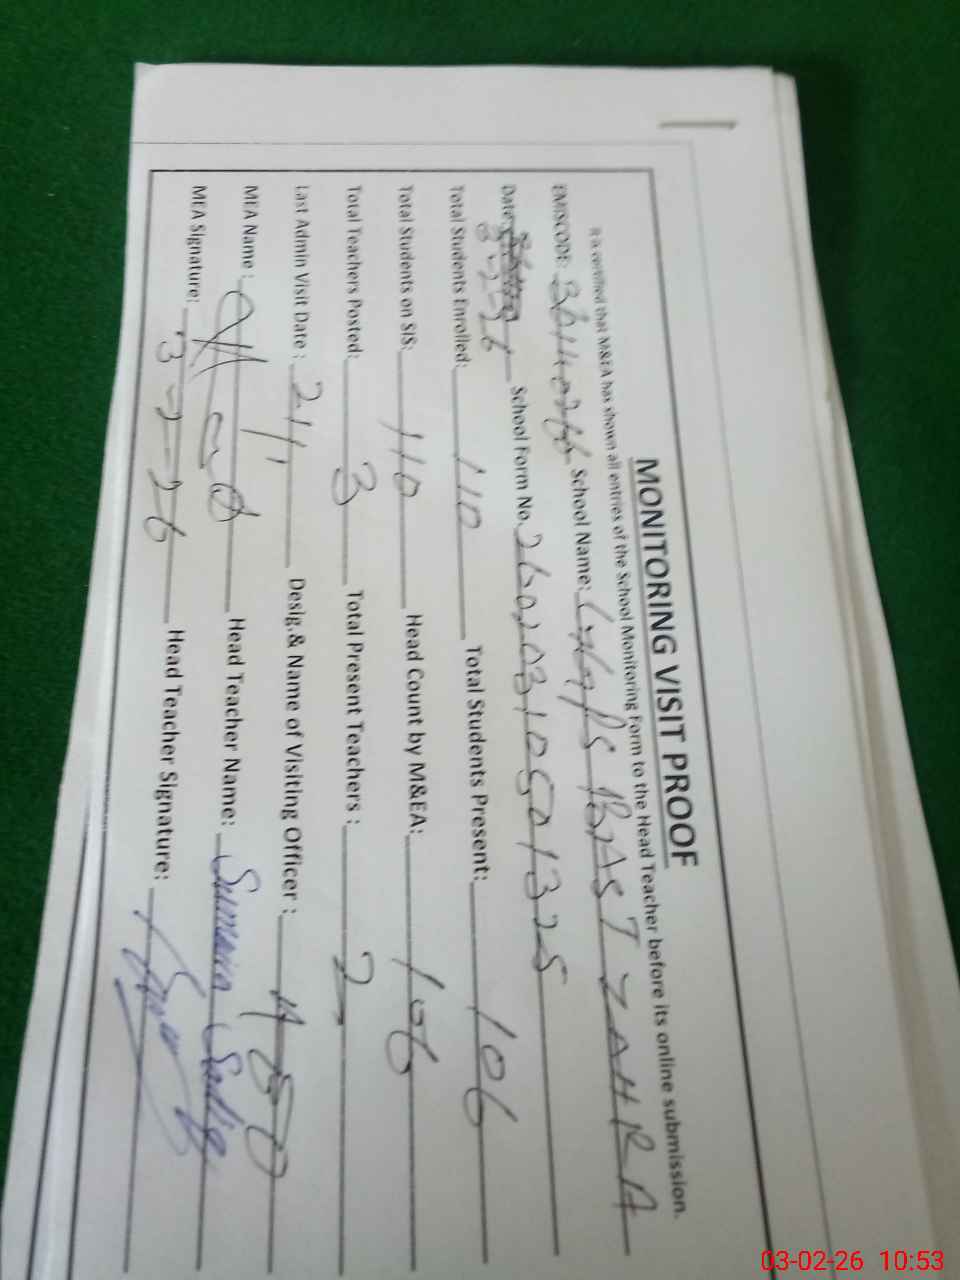 MONITORING VISIT PROOF
It is certified that M&EA has shown all entries of the School Monitoring Form to the Head Teacher before its online submission.
EMISCODE: School Name: BAST ZAHRA
Date: 3-2-26 School Form No. 26020310501325
Total Students Enrolled: 110 Total Students Present: 106
Total Students on SIS: 110 Head Count by M&EA: 106
Total Teachers Posted: 3 Total Present Teachers : 2
Last Admin Visit Date : 21/1 Desig.& Name of Visiting Officer :
MEA Name : Head Teacher Name: Sumaira Sadiq
MEA Signature: 3-2-26 Head Teacher Signature:
03-02-26 10:53